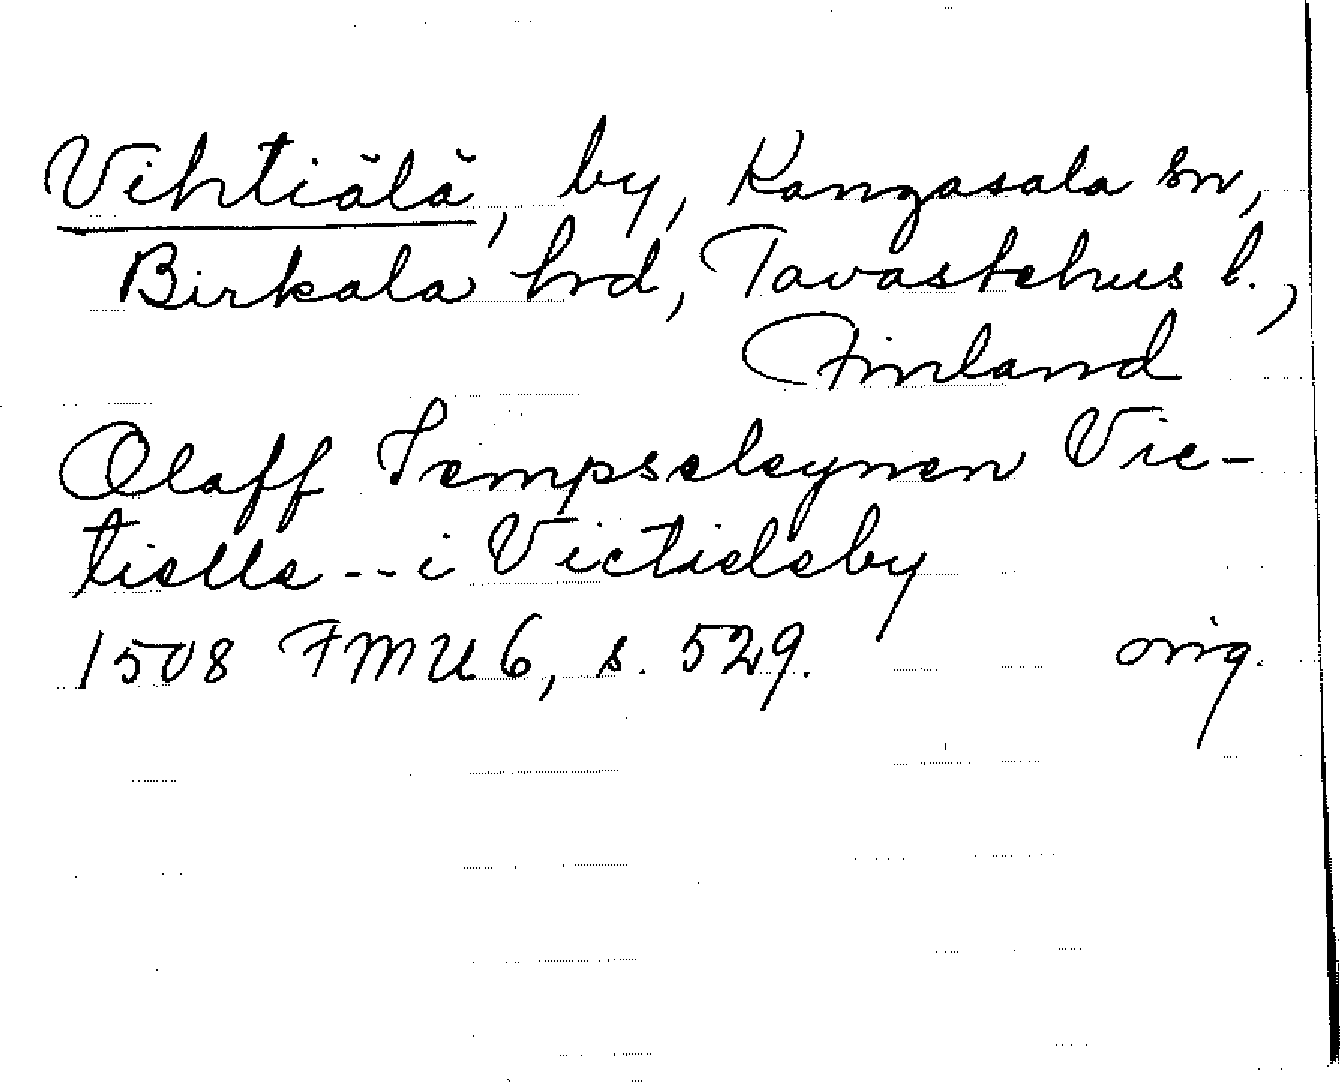 Vihtiälä, by, Kangasala sn,
Birkala hrd, Tavastehus l.,
Finland
Olaff Tempseleynen Vic-
tiella -- i Victieleby
1508 FMU 6, s. 529. orig.